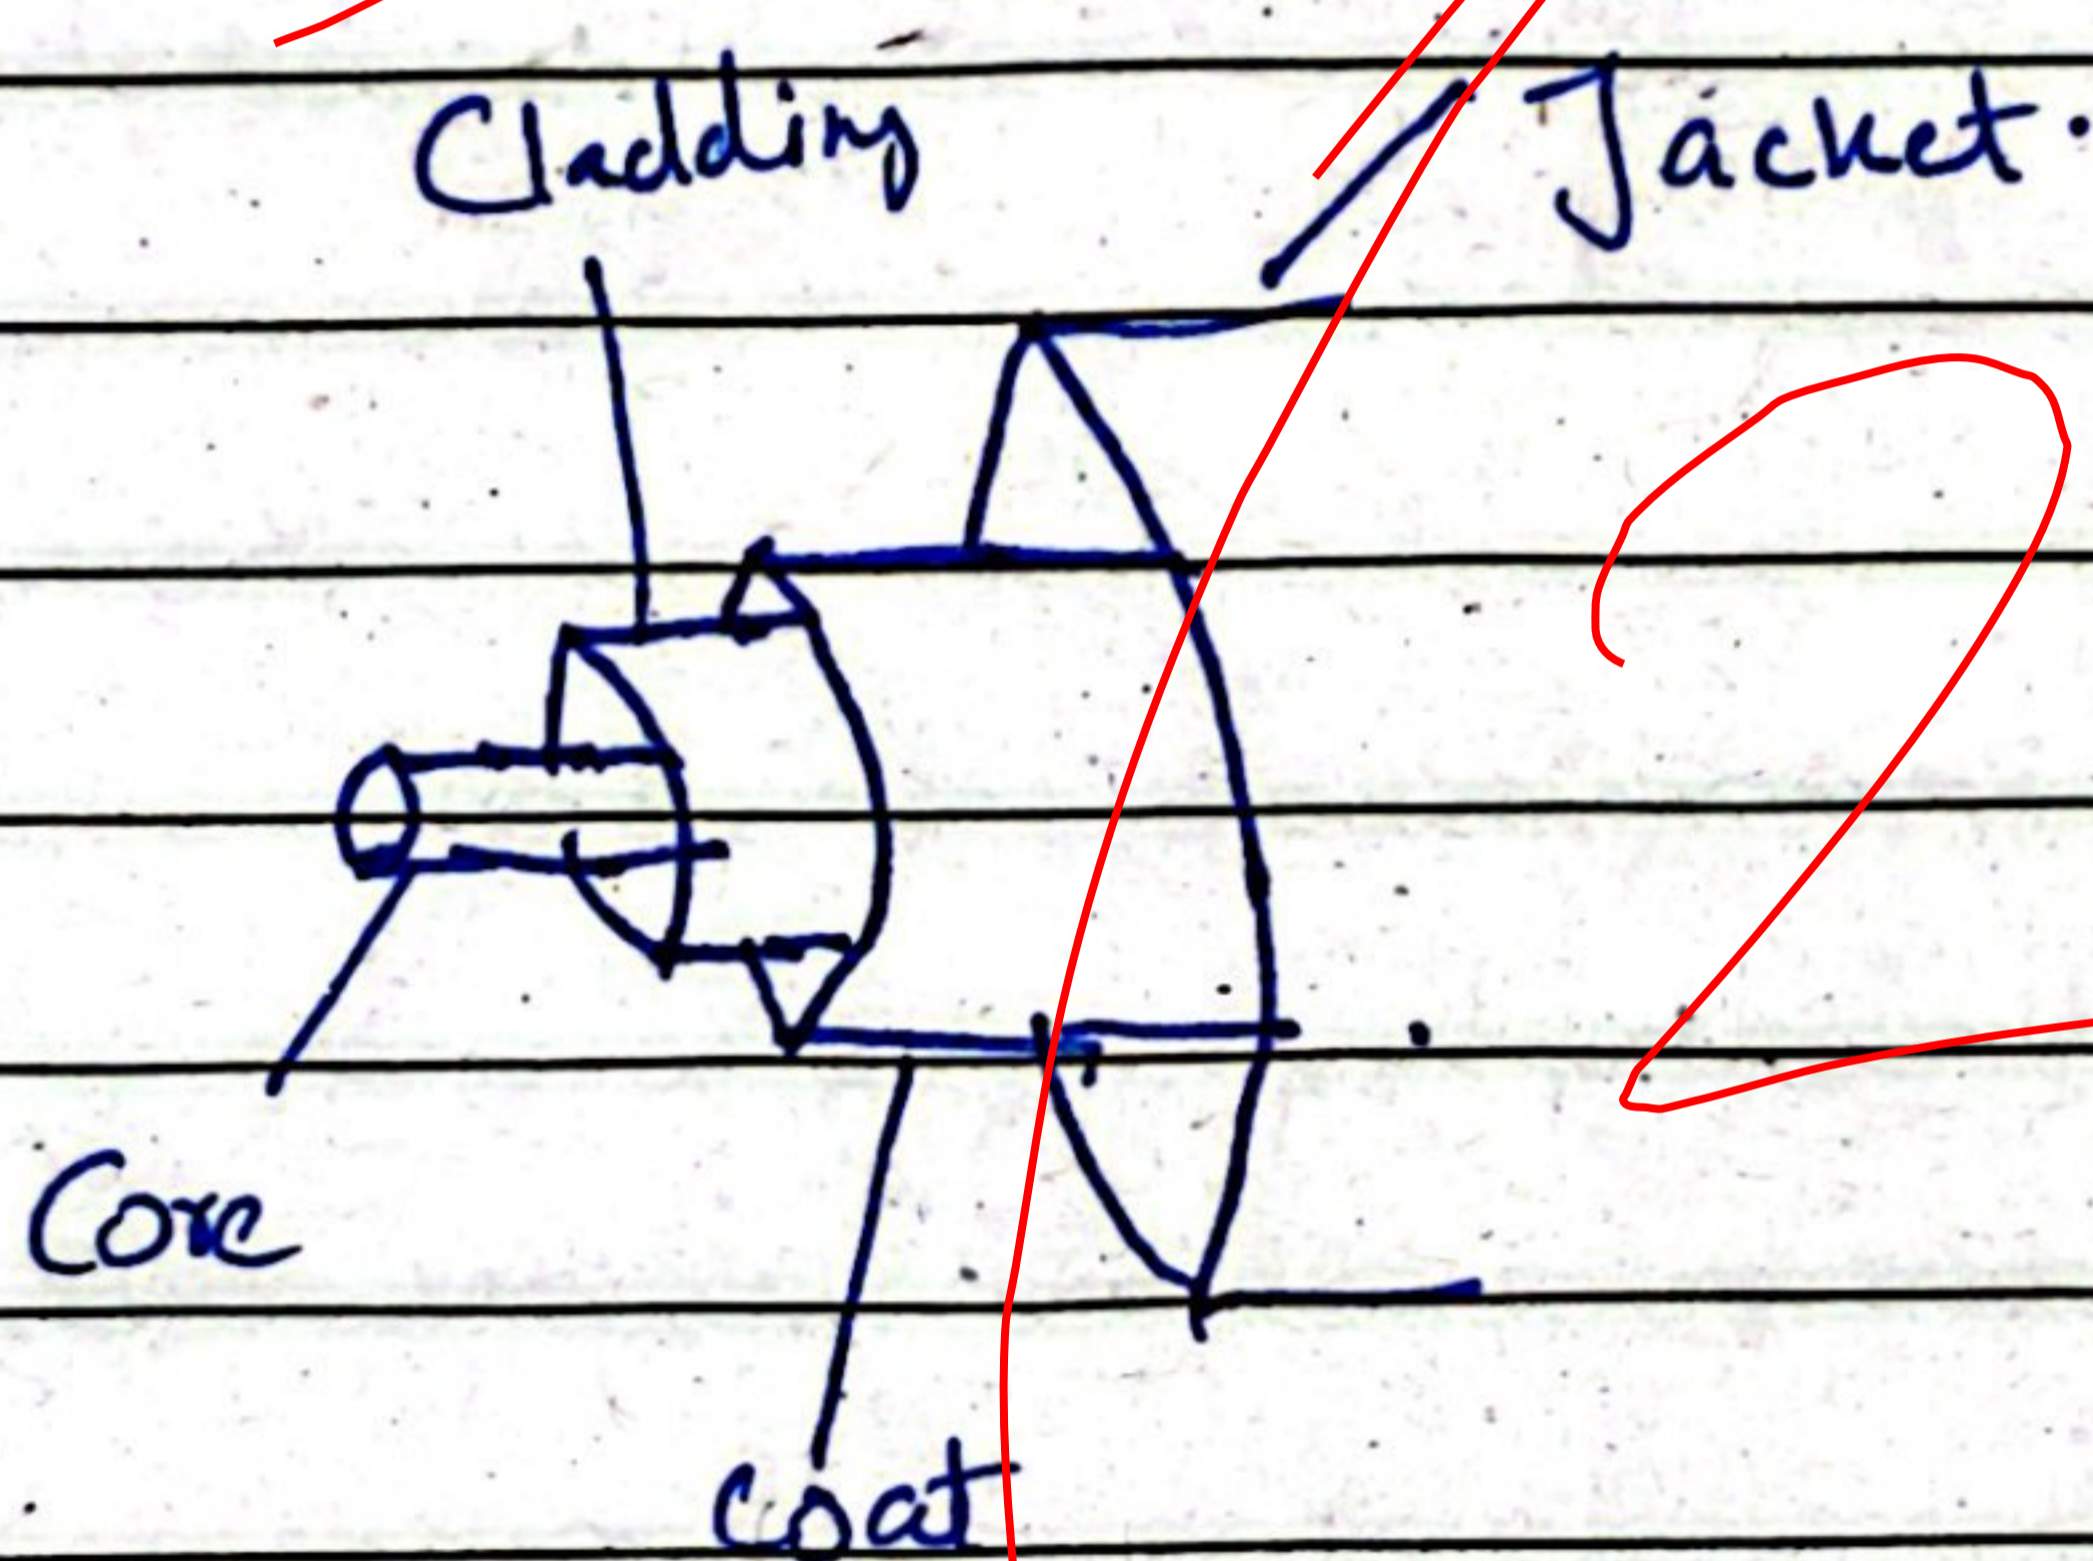 Cladding
Jacket.
Core
Coat
2